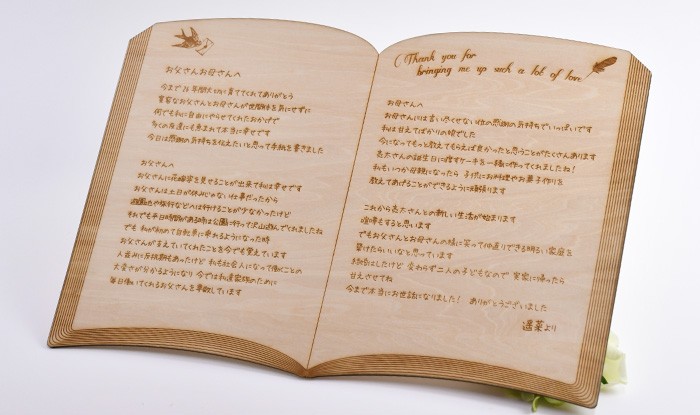 お父さんお母さんへ
今まで26年間大切に育ててくれてありがとう
寛容なお父さんとお母さんが世間体を気にせずに
何でも私に自由にやらせてくれたおかげで
多くの友達にも恵まれて本当に幸せです
今日は感謝の気持ちを伝えたいと思って手紙を書きました
お父さんへ
お父さんに花嫁姿を見せることが出来て私は幸せです
お父さんは土日が休みじゃない仕事だったから
遊園地や旅行などへは行けることが少なかったけど
それでも平日時間がある時は公園に行って沢山遊んでくれましたね
でも 私が初めて自転車に乗れるようになった時
お父さんが支えていてくれたことを今でも覚えています
人並みに反抗期もあったけど 私も社会人になって働くことの
大変さが分かるようになり 今では私達家族のために
毎日働いてくれるお父さんを尊敬しています
Thank you for
bringing me up such a lot of love
お母さんへ
お母さんには言い尽くせない位の感謝の気持ちでいっぱいです
私は甘えてばかりの娘でした
今になってもっと教えてもらえば良かったと思うことがたくさんあります
亮太さんの誕生日に渡すケーキを一緒に作ってくれましたね!
私もいつか母親になったら 子供にお料理やお菓子作りを
教えてあげることができるように頑張ります
これから亮太さんとの新しい生活が始まります
喧嘩もすると思います
でもお父さんとお母さんの様に笑って仲直りできる明るい家庭を
築けたらいいなと思っています
結婚はしたけど 変わらず二人の子どもなので 実家に帰ったら
甘えさせてね
今まで本当にお世話になりました! ありがとうございました
遥菜より